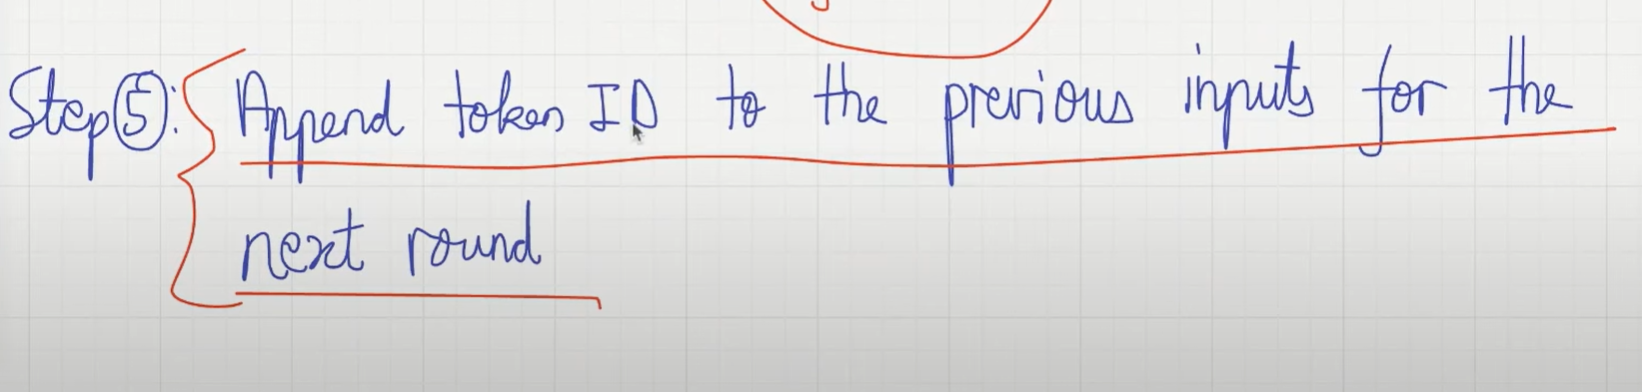 Step ⑤: Append token ID to the previous inputs for the
next round